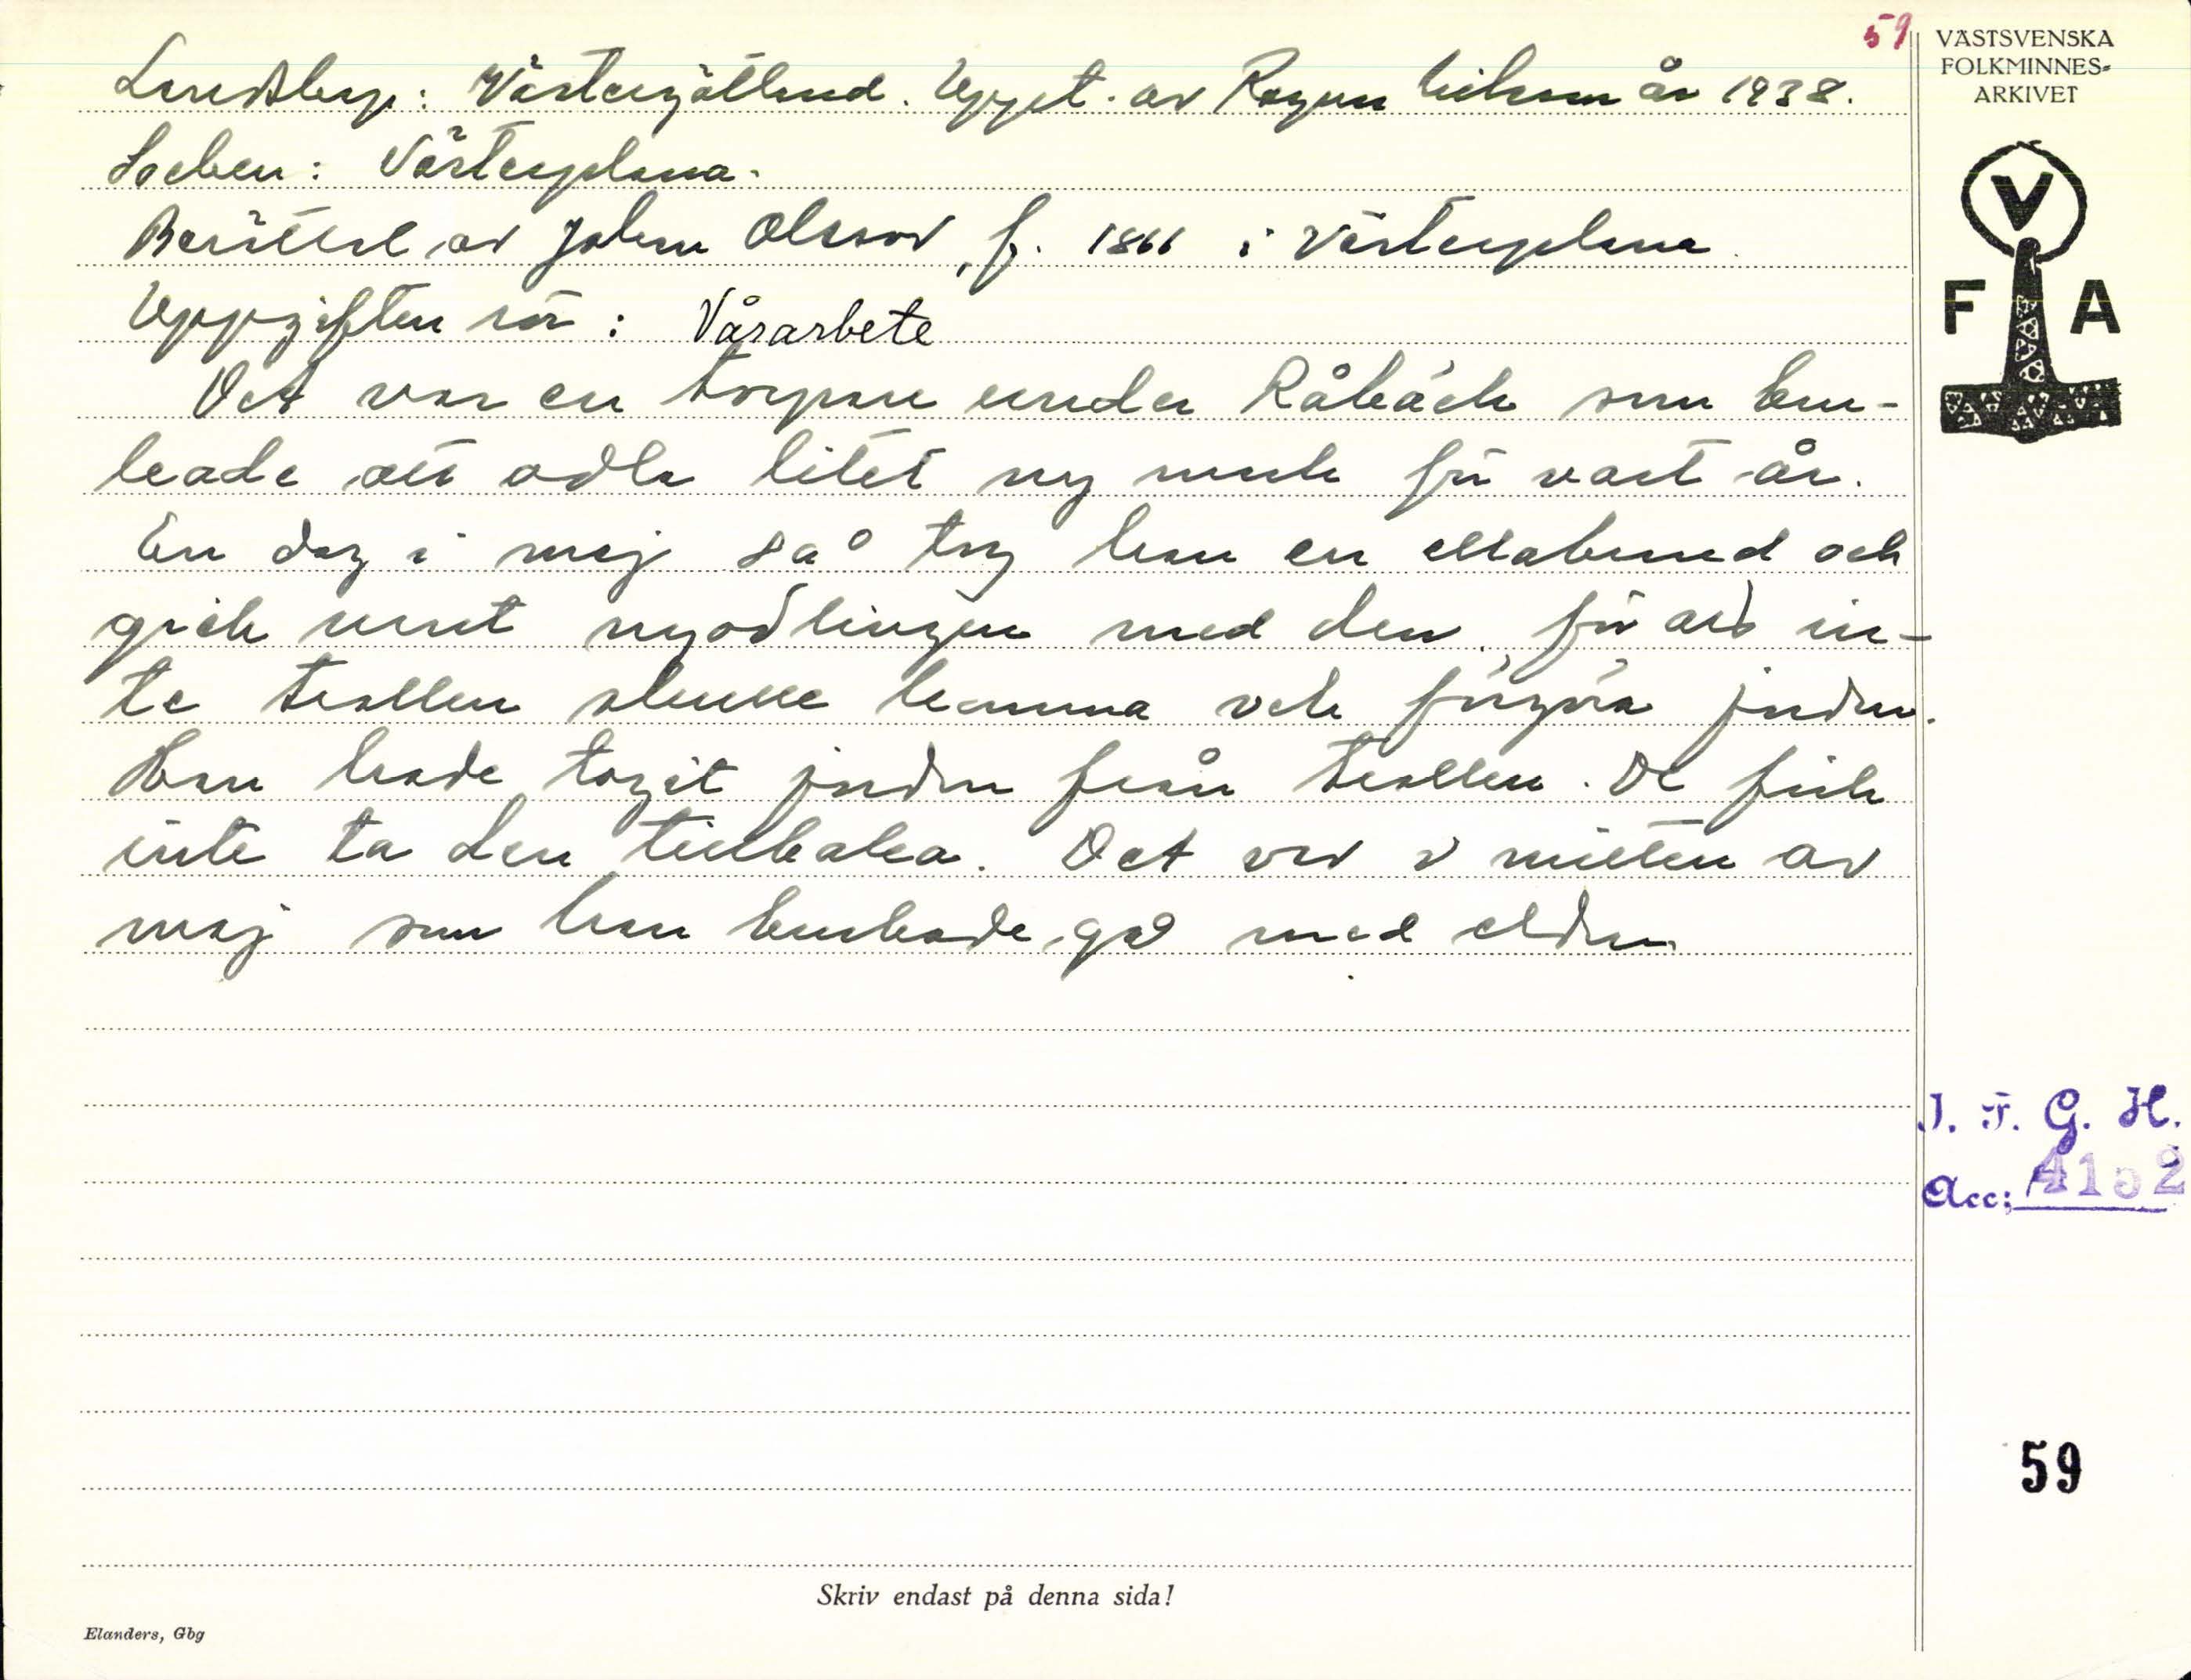 59
VÄSTSVENSKA
FOLKMINNES-
ARKIVET
Landskap: Västergötland. Uppt. av Ragnar Nilsson år 1938.
Socken: Västerplana.
Berättat av Johan Olsson, f. 1866 i Västerplana.
Uppgiften rör: Vårarbete
Det var en torpare under Råbäck som bru-
kade att odla litet ny mark för vart år.
En dag i maj så tog han en eldabrand och
gick runt nyodlingen med den, för att in-
te trollen skulle komma och förgöra jorden.
Han hade tagit jorden från trollen. De fick
inte ta den tillbaka. Det var i mitten av
maj som han brukade gå med elden.
V
F A
J. F. G. H.
Acc: 4152
59
Skriv endast på denna sida!
Elanders, Gbg